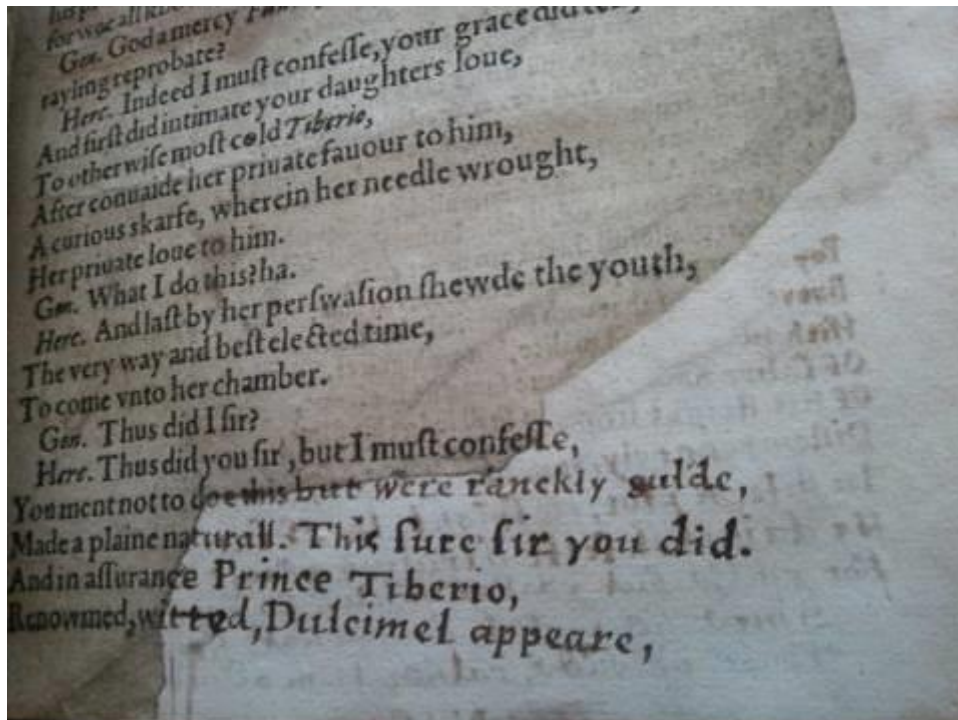 for woe all
Gon. God a mercy
rayling reprobate?
Herc. Indeed I muſt confeſſe, your grace did
And firſt did intimate your daughters loue,
To otherwiſe moſt cold Tiberio,
After conuaide her priuate fauour to him,
A curious skarfe, wherein her needle wrought,
Her priuate loue to him.
Gon. What I do this? ha.
Herc. And laſt by her perſwaſion ſhewde the youth,
The very way and beſt elected time,
To come vnto her chamber.
Gon. Thus did I ſir?
Herc. Thus did you ſir, but I muſt confeſſe,
You ment not to doe this but were ranckly gulde,
Made a plaine naturall. This ſure ſir you did.
And in aſſurance Prince Tiberio,
Renowmed, witted, Dulcimel appeare,